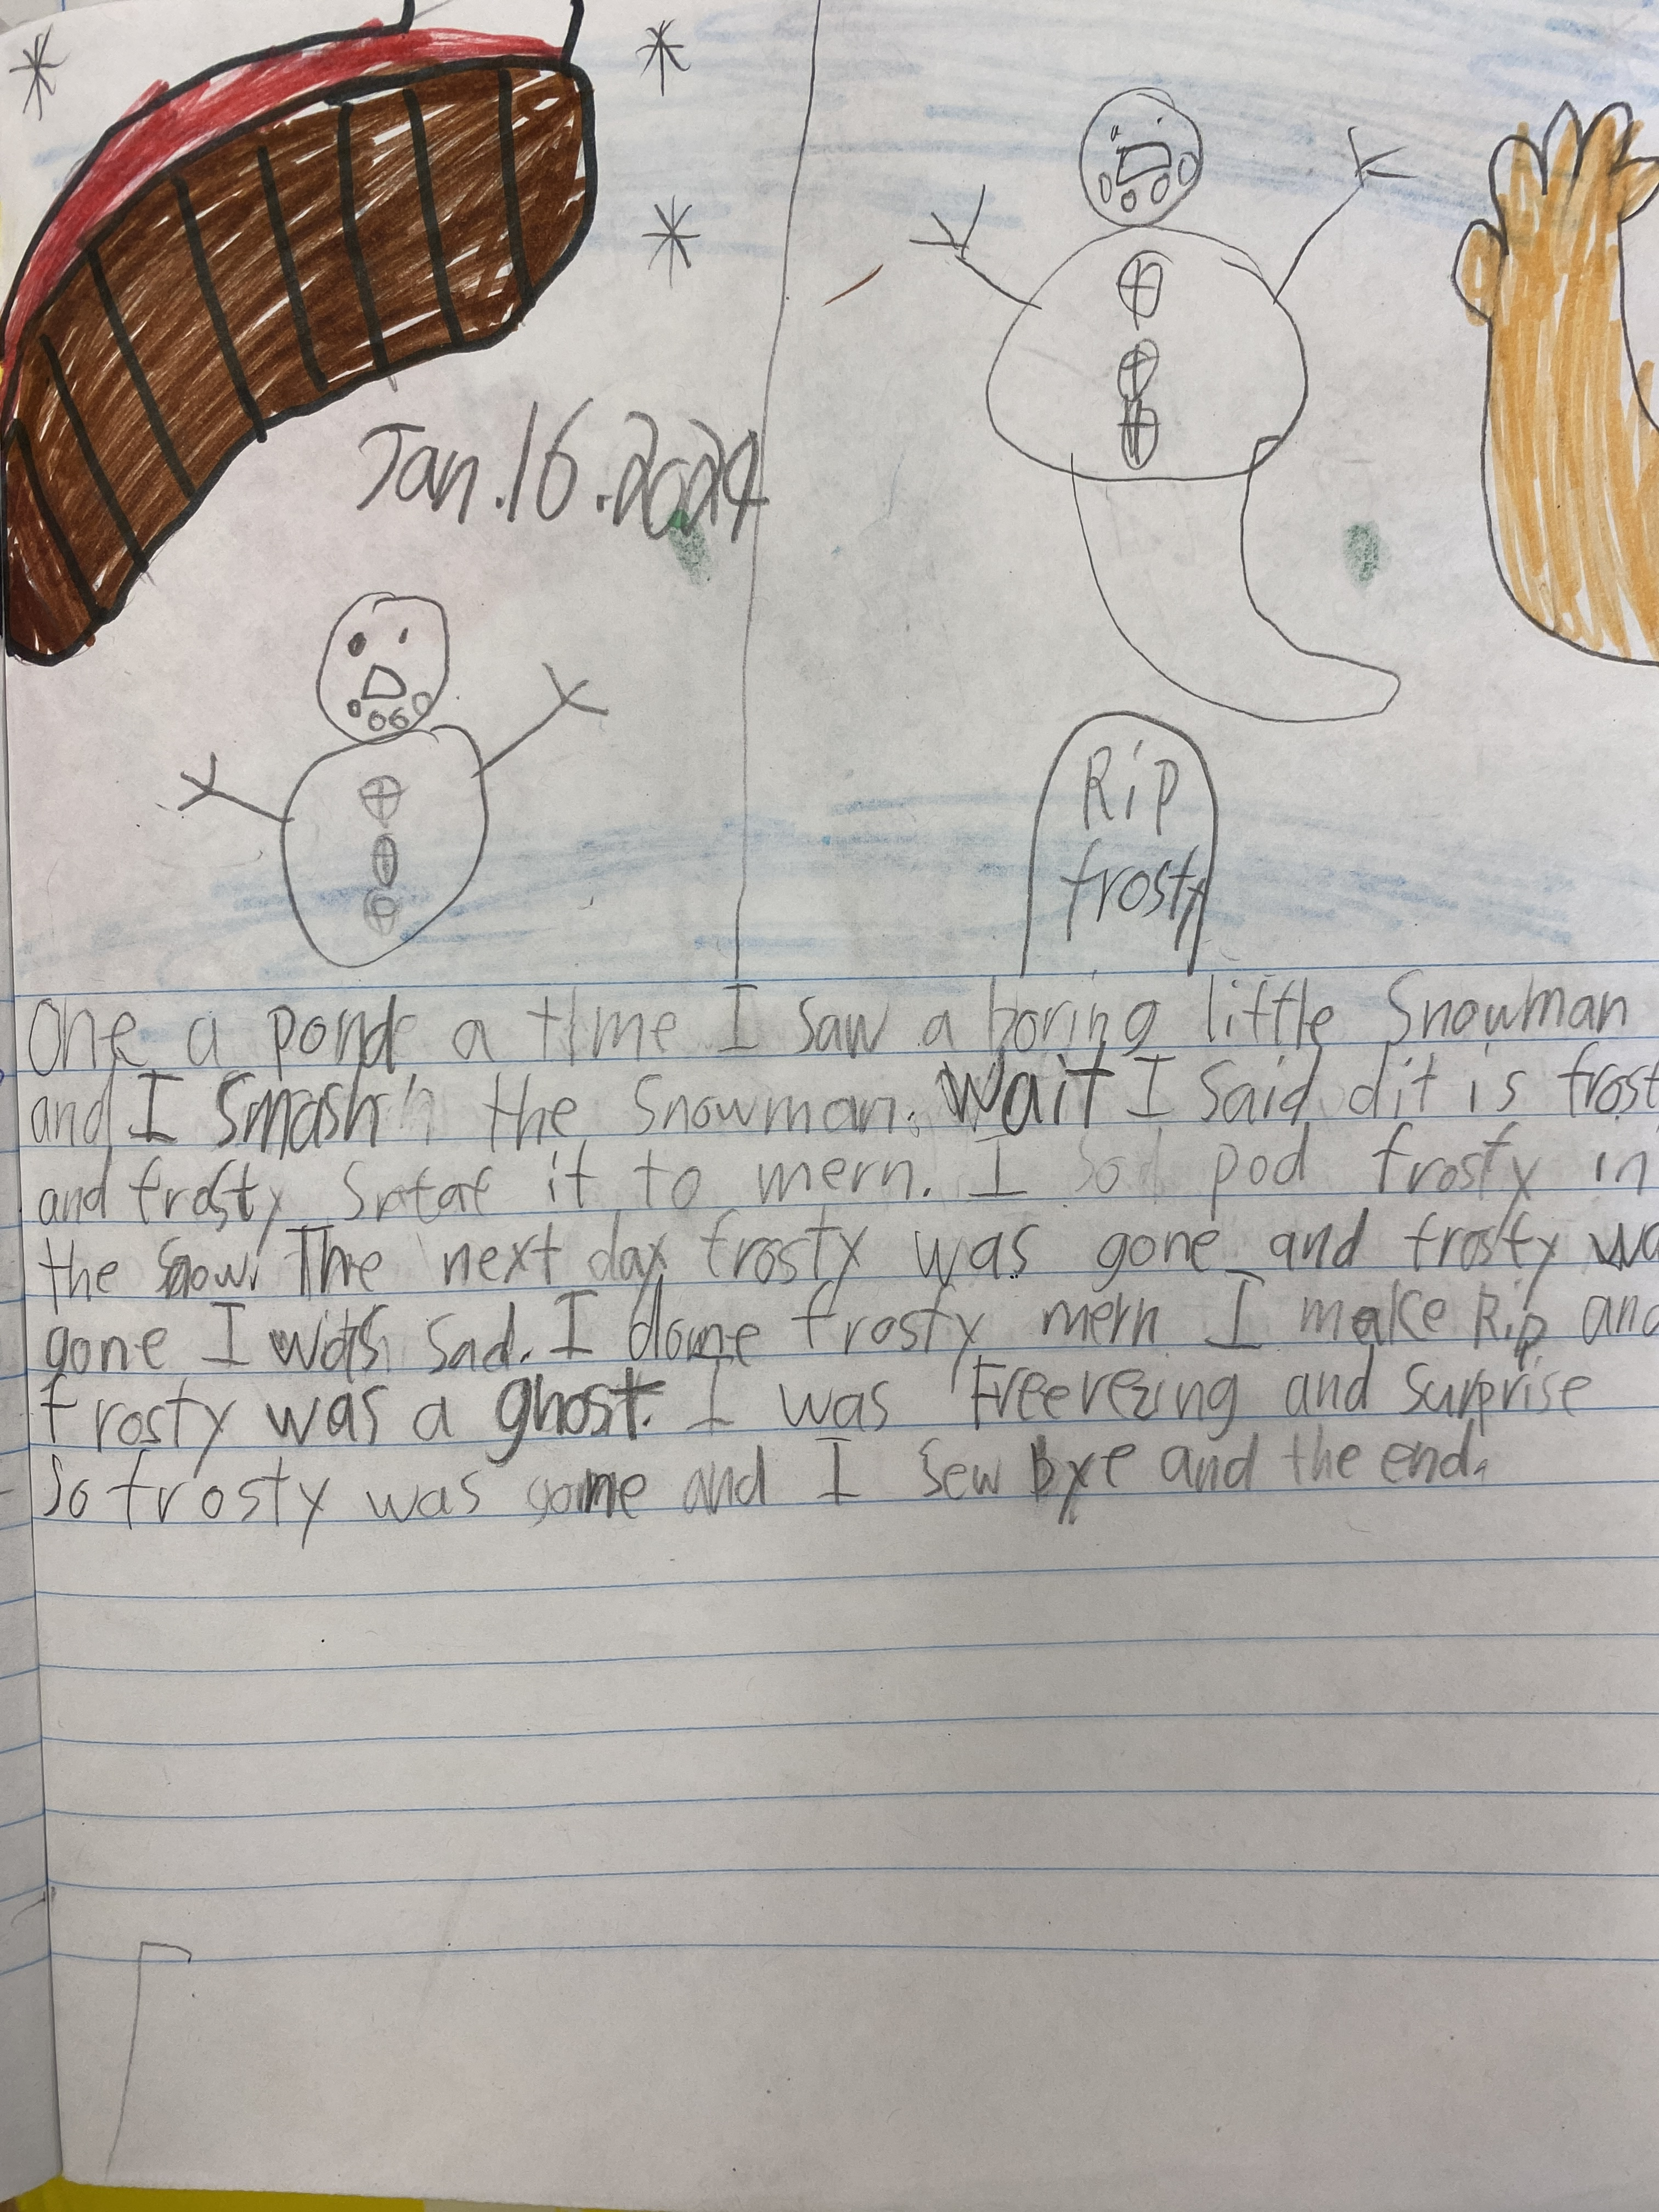 Jan.16.2024
Rip
frosty
One a pond a time I saw a boring little Snowman
and I Smash the Snowman. Wait I Said dit is frost
and frosty Sratat it to mern. I pod frosty in
the Snow. The next day frosty was gone and frosty wa
gone I was Sad. I frosty mern I make Rip and
frosty was a ghost. I was Freerezing and Surprise
So frosty was and I Sew bye and the end.